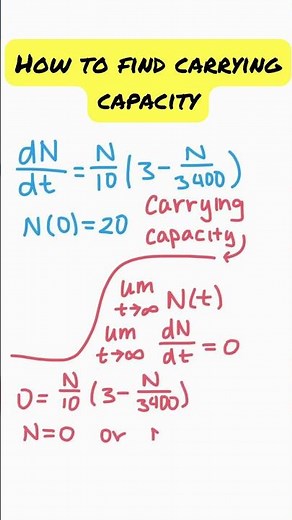 How to find carrying
capacity
dN/dt = N/10 (3 - N/3400)
N(0)=20
Carrying
capacity
lim t→∞ N(t)
lim t→∞ dN/dt = 0
0 = N/10 (3 - N/3400)
N=0 or